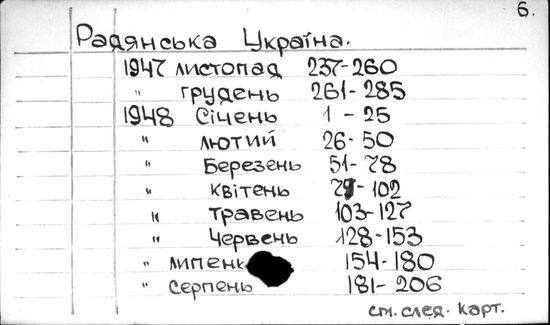 6.
Радянська Україна.
1947 листопад 237-260
" грудень 261-285
1948 Січень 1-25
" лютий 26-50
" Березень 51-78
" квітень 79-102
" травень 103-127
" Червень 128-153
" липень 154-180
" серпень 181-206
см. след. карт.